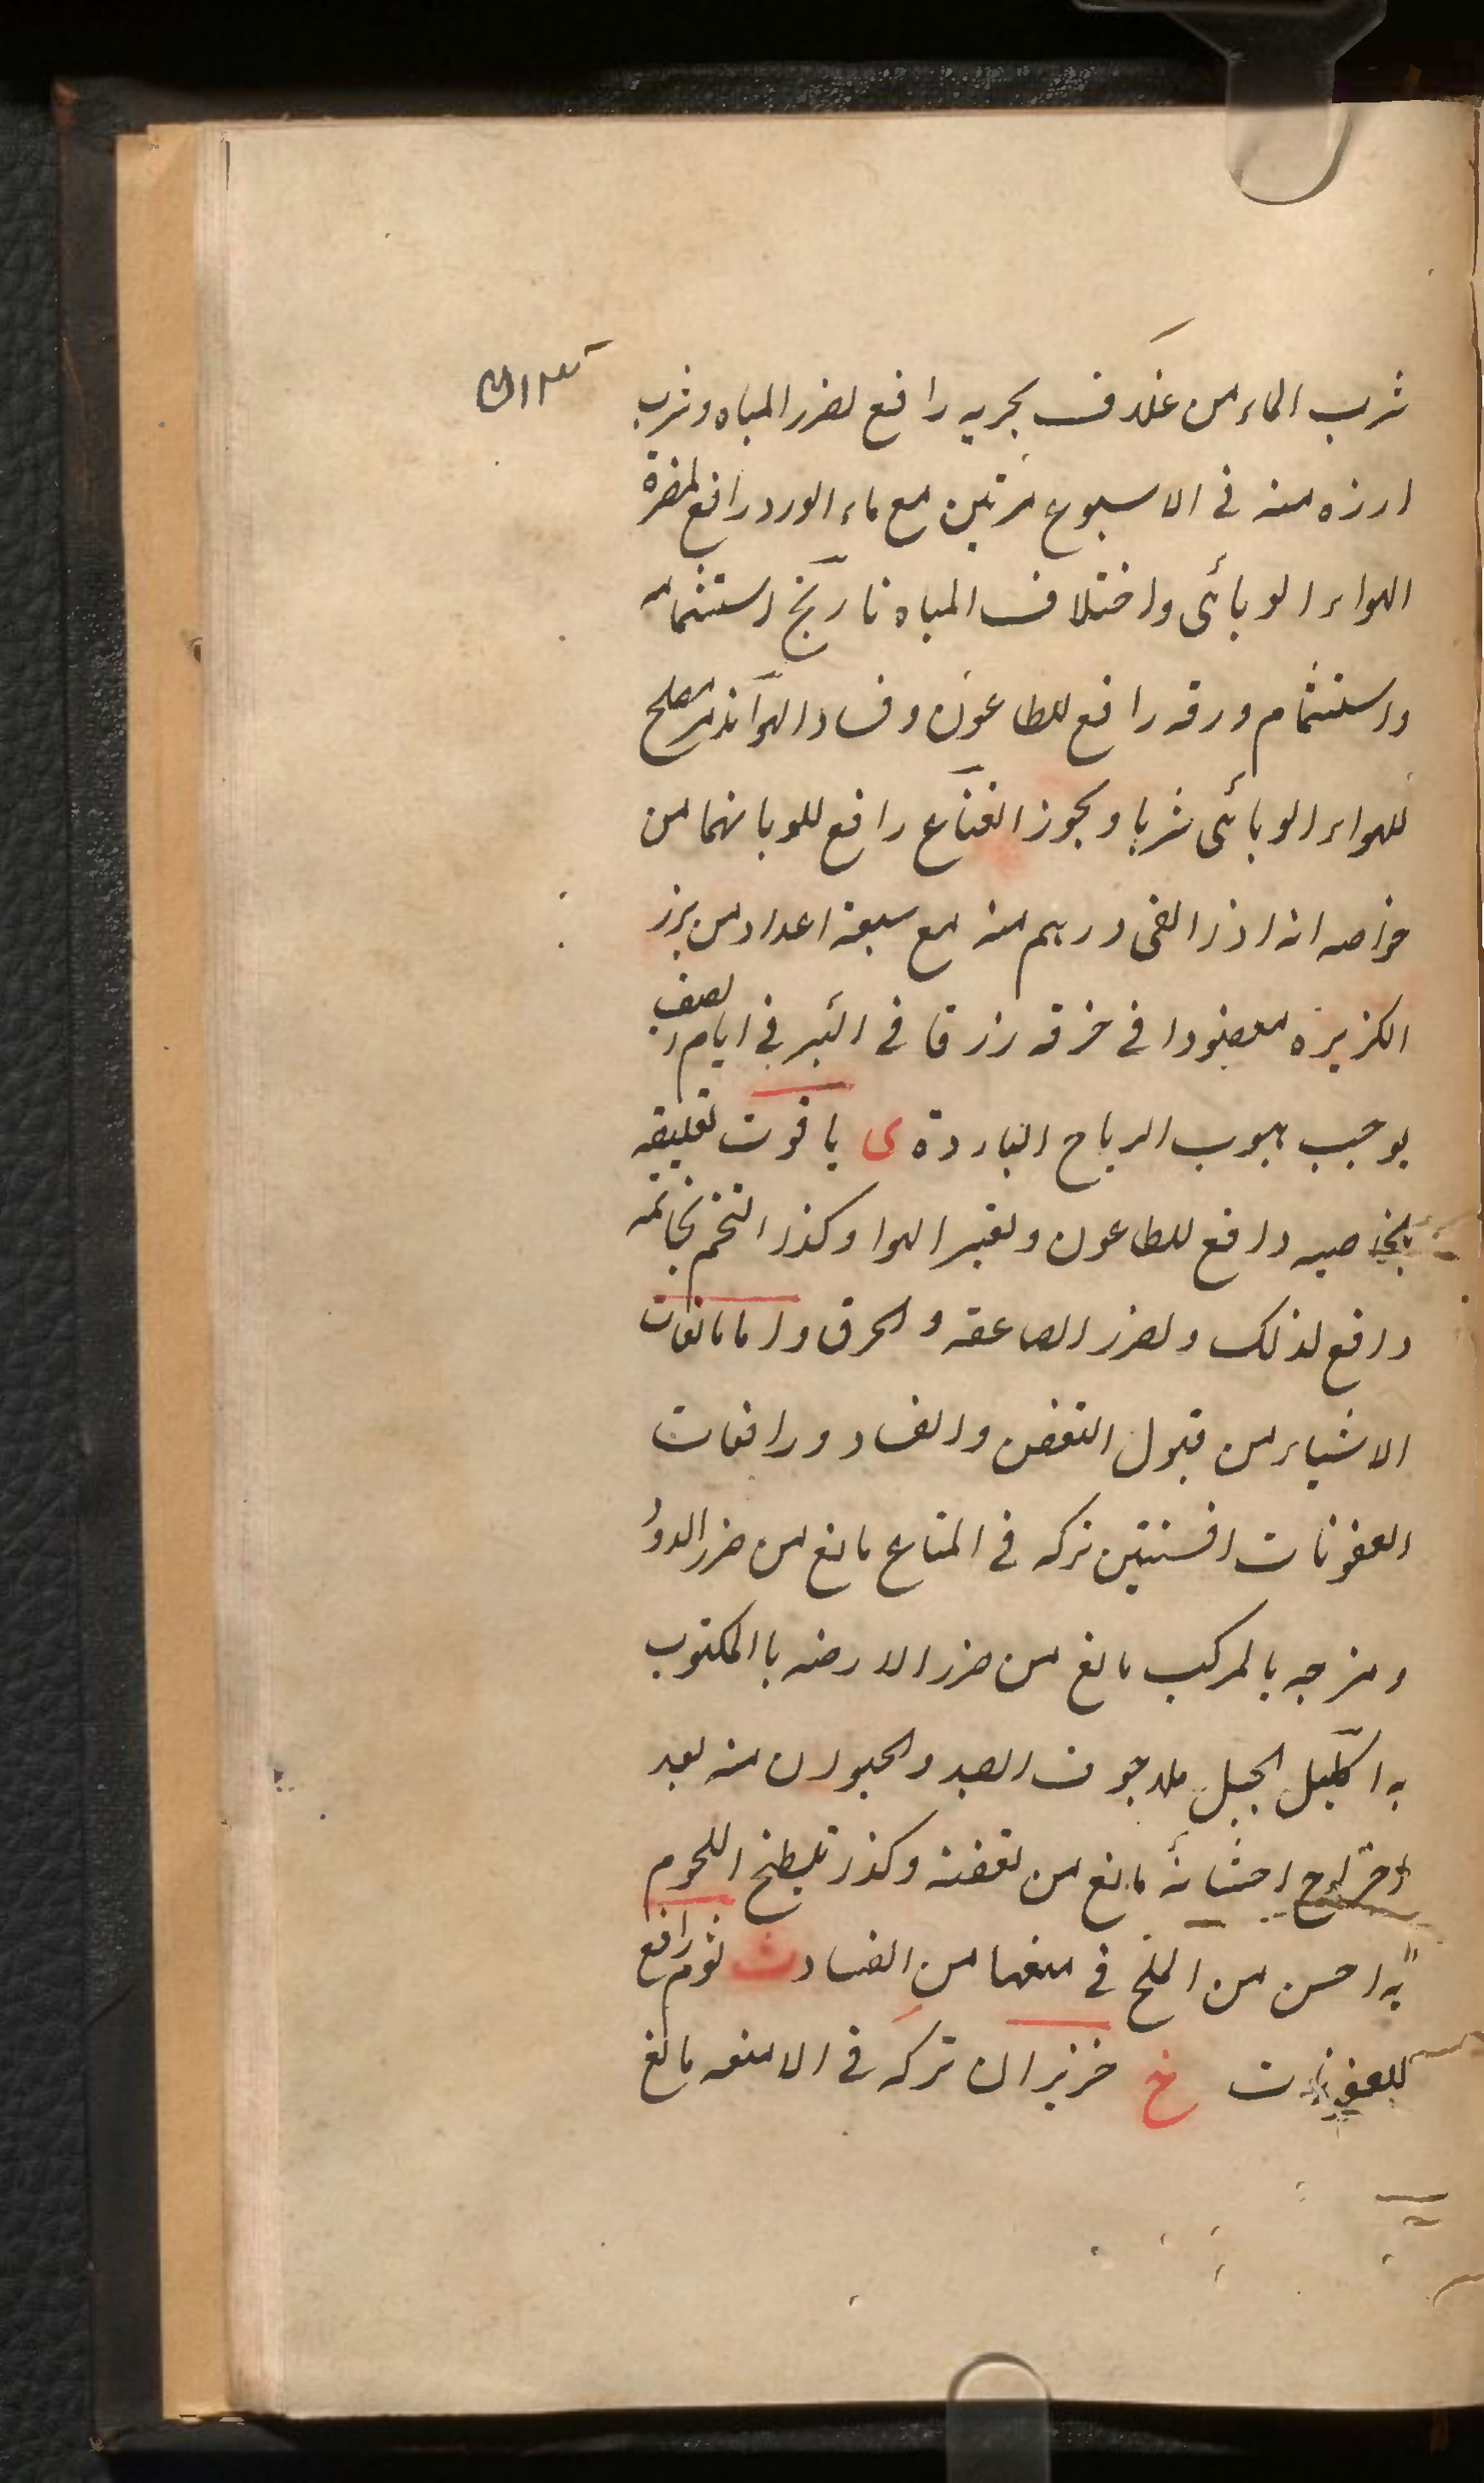 شرب الماء من غلاف بحريه رافع لضرر المياه وشرب
ارزه منه فى الاسبوع مرتين مع ماء الورد رافع لمضرة
الهواء الوبائى واختلاف المياه نارنج استشمامه
واستشمام ورقه رافع للطاعون وفساد الهوآ مصلح
للهواء الوبائى شربا وبخورا نعناع رافع للوبا نهما من
خواصه انه اذا القى درهم منه مع سبعة اعداد من بزر
الكزبره معضودا فى خرقه زرقا فى البير فى ايام الصيف
يوجب هبوب الرياح الباردة ى ياقوت تعليقه
بالخاصيه دافع للطاعون ولغير الهوا وكذا التختم بخاتمه
دافع لذلك ولضرر الصاعقه والحرق واما مانعات
الاشياء من قبول التعفن والفساد ورافعات
العفونات افسنتين تركه فى المتاع مانع من ضرر الدود
ومزجه بالمركب مانع من ضرر الارضه بالمكتوب
به اكليل الجبل ملاء جوف الصيد والحيوان منه بعد
اخراج احشائه مانع من تعفنه وكذا تلطيخ اللحوم
به احسن من الملح فى منعها من الفساد ث ثوم رافع
للعفونات خ خيزران تركه فى الامتعه مانع